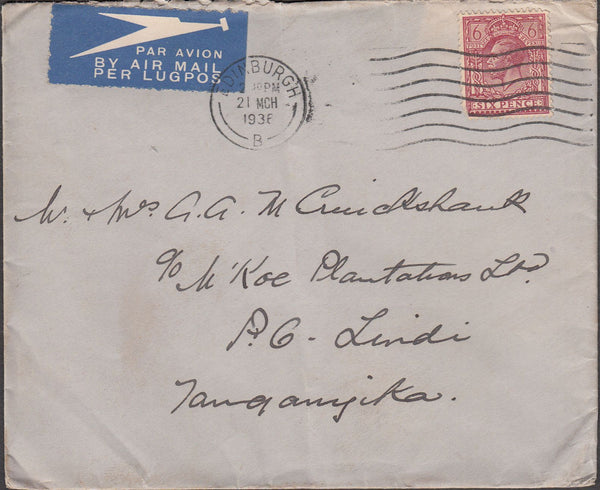 PAR AVION
BY AIR MAIL
PER LUGPOS
EDINBURGH
21 MCH
1936
B
6 6
SIX PENCE
Mr. & Mrs A. A. M Cruickshank
c/o M'Koe Plantations Ltd.
P.O. Lindi
Tanganyika.